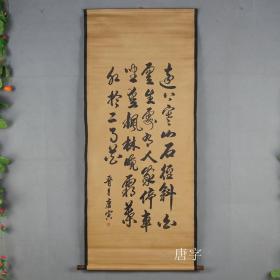 遠上寒山石徑斜白
雲生處有人家停車
坐愛楓林晚霜葉
紅於二月花
晋昌唐寅
唐字